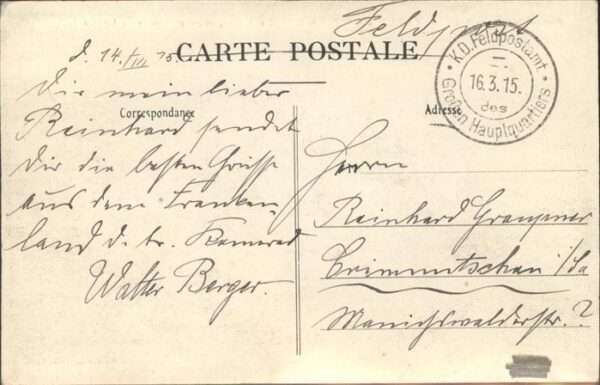 Feldpost
CARTE POSTALE
d. 14./III 15.
Correspondance
Adresse
K.D. Feldpostamt
16.3.15.
des
Großen Hauptquartiers
Dir mein lieber
Reinhard sendet
Dir die besten Grüsse
aus dem Franken-
land d. tr. Kamerad
Walter Berger.
Herrn
Reinhard Graupner
Crimmitschau i/Sa
Manichswalderstr. ?